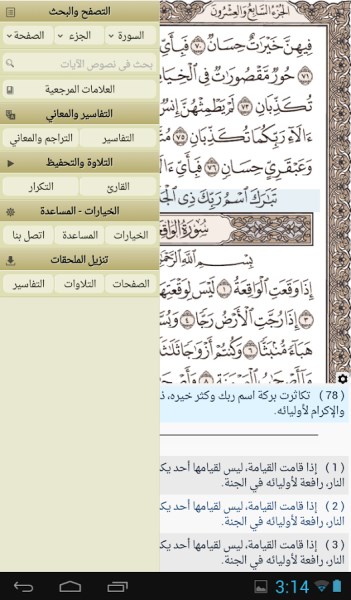 التصفح والبحث
السورة
الجزء
الصفحة
بحث فى نصوص الآيات
العلامات المرجعية
التفاسير والمعاني
التفاسير
التراجم والمعاني
التلاوة والتحفيظ
القارئ
التكرار
الخيارات - المساعدة
الخيارات
المساعدة
اتصل بنا
تنزيل الملحقات
الصفحات
التلاوات
التفاسير
الجزء السابع والعشرون
فِيهِنَّ خَيْرَاتٌ حِسَانٌ ٧٠ فَبِأَيِّ
٧١ حُورٌ مَّقْصُورَاتٌ فِي الْخِيَا
تُكَذِّبَانِ ٧٣ لَمْ يَطْمِثْهُنَّ إِنسٌ
ءَالَاءِ رَبِّكُمَا تُكَذِّبَانِ ٧٥
وَعَبْقَرِيٍّ حِسَانٍ ٧٦ فَبِأَيِّ ءَالَا
تَبَارَكَ اسْمُ رَبِّكَ ذِي الْجَ
سورة الواقع
بِسْمِ اللَّهِ الرَّحْمَ
إِذَا وَقَعَتِ الْوَاقِعَةُ ١ لَيْسَ لِوَقْعَتِهَا
٣ إِذَا رُجَّتِ الْأَرْضُ رَجًّا ٤ وَبُسَّ
هَبَاءً مُّنبَثًّا ٦ وَكُنتُمْ أَزْوَاجًا ثَلَاثَ
٨
( 78 ) تكاثرت بركة اسم ربك وكثر خيره، ذ
والإكرام لأوليائه.
( 1 ) إذا قامت القيامة، ليس لقيامها أحد يك
النار، رافعة لأوليائه في الجنة.
( 2 ) إذا قامت القيامة، ليس لقيامها أحد يك
النار، رافعة لأوليائه في الجنة.
( 3 ) إذا قامت القيامة، ليس لقيامها أحد يك
النار، رافعة لأوليائه في الجنة.
3:14